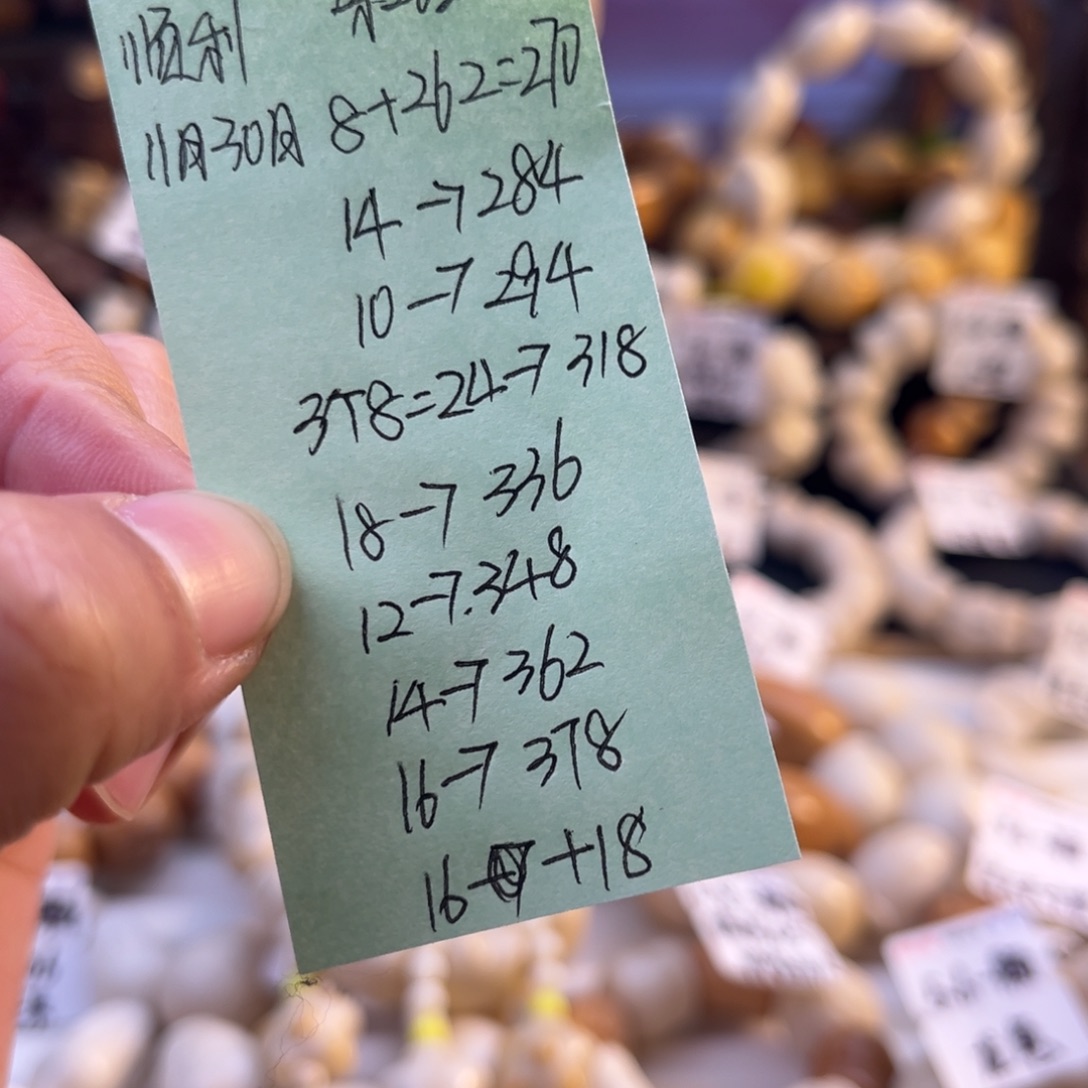 顺利
11月30日 8+262=270
14→284
10→294
3个8=24→318
18→336
12→348
14→362
16→378
16 +18